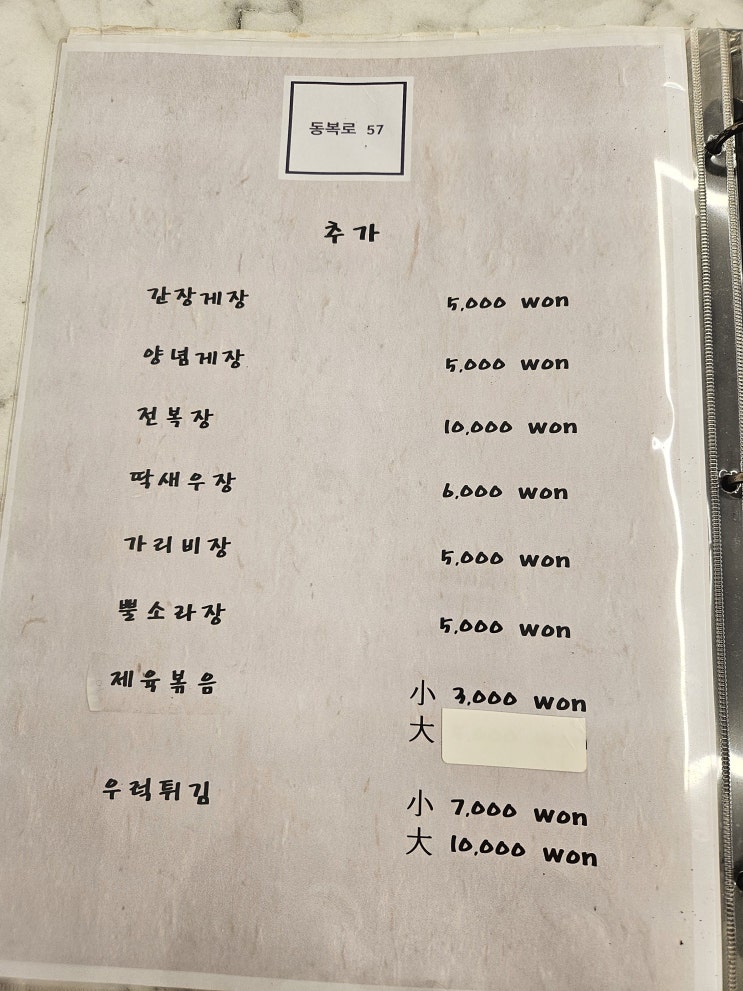 동복로 57
추가
간장게장 5,000 won
양념게장 5,000 won
전복장 10,000 won
딱새우장 6,000 won
가리비장 5,000 won
뿔소라장 5,000 won
제육볶음 小 3,000 won
大
우럭튀김 小 7,000 won
大 10,000 won